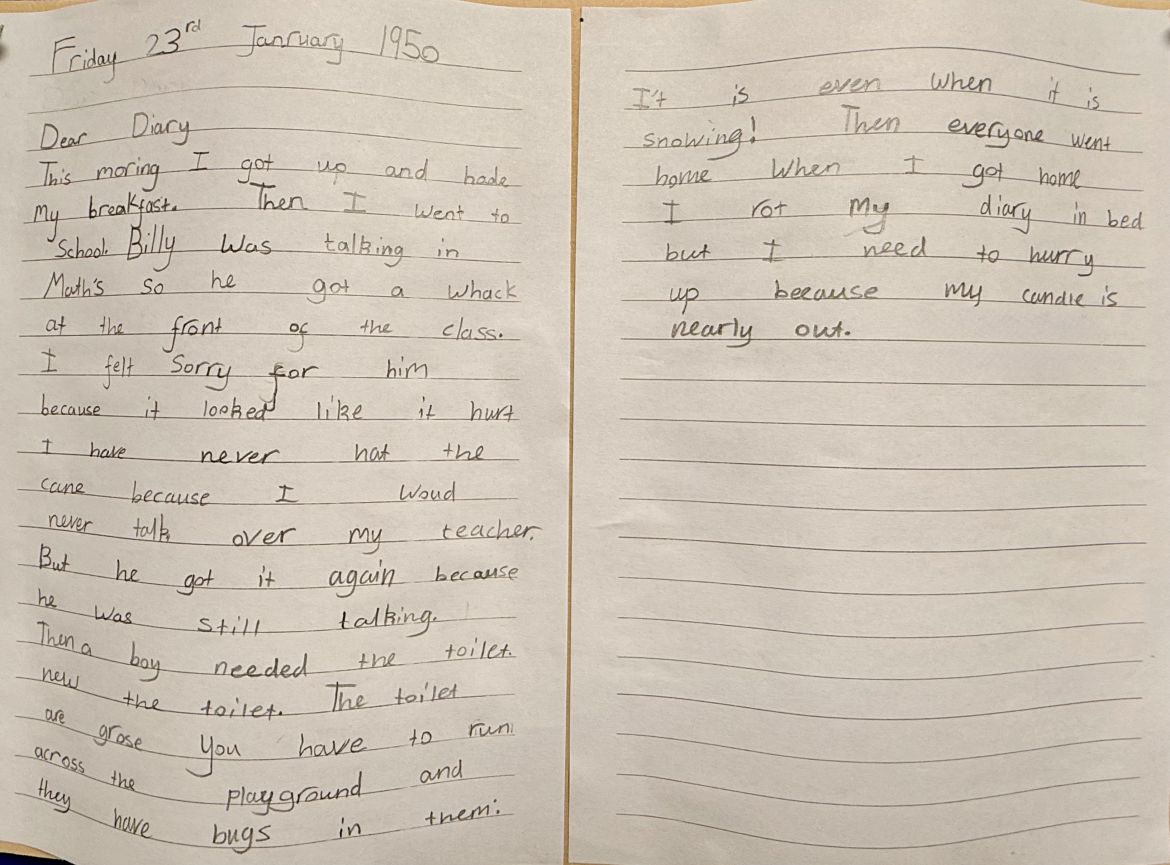 Friday 23rd Janruary 1950
Dear Diary
This moring I got up and hade
My breakfast. Then I went to
School. Billy Was talking in
Math's so he got a whack
at the front of the class.
I felt Sorry for him
because it looked like it hurt
I have never hat the
cane because I Woud
never talk over my teacher.
But he got it again because
he was still talking.
Then a boy needed the toilet.
new the toilet. The toilet
are grose you have to run
across the playground and
they have bugs in them.
I't is even when it is
snowing! Then everyone went
home When I got home
I rot My diary in bed
but I need to hurry
up because my candle is
nearly out.